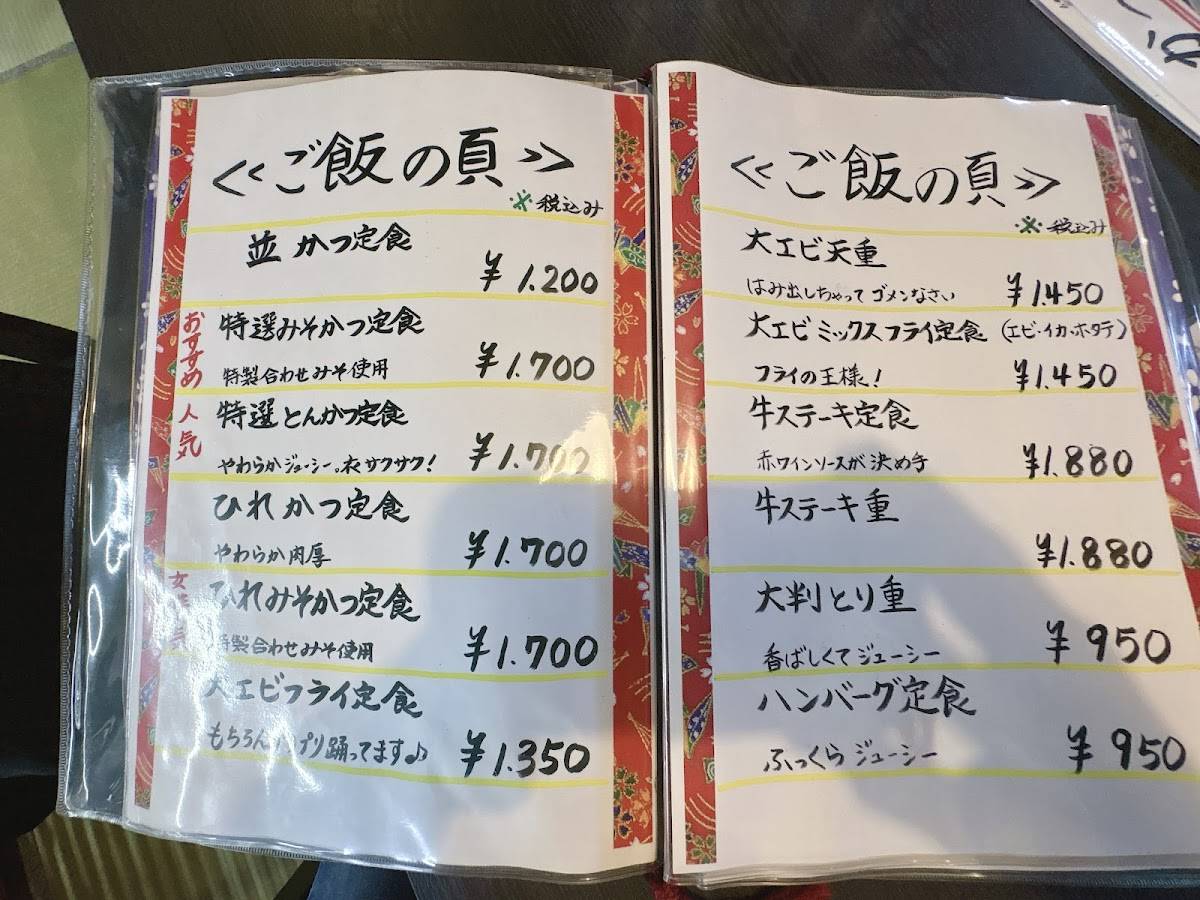 ≪ご飯の頁≫
※税込み
並かつ定食
¥1.200
おすすめ
特選みそかつ定食
特製合わせみそ使用 ¥1.700
人気
特選とんかつ定食
やわらかジューシー、衣サクサク! ¥1.700
ひれかつ定食
やわらか肉厚 ¥1.700
ひれみそかつ定食
特製合わせみそ使用 ¥1.700
大エビフライ定食
もちろん プリ踊ってます♪ ¥1.350
≪ご飯の頁≫
※税込み
大エビ天重
はみ出しちゃってゴメンなさい ¥1.450
大エビミックスフライ定食 (エビ・イカ・ホタテ)
フライの王様! ¥1.450
牛ステーキ定食
赤ワインソースが決め手 ¥1.880
牛ステーキ重
¥1.880
大判とり重
香ばしくてジューシー ¥950
ハンバーグ定食
ふっくらジューシー ¥950